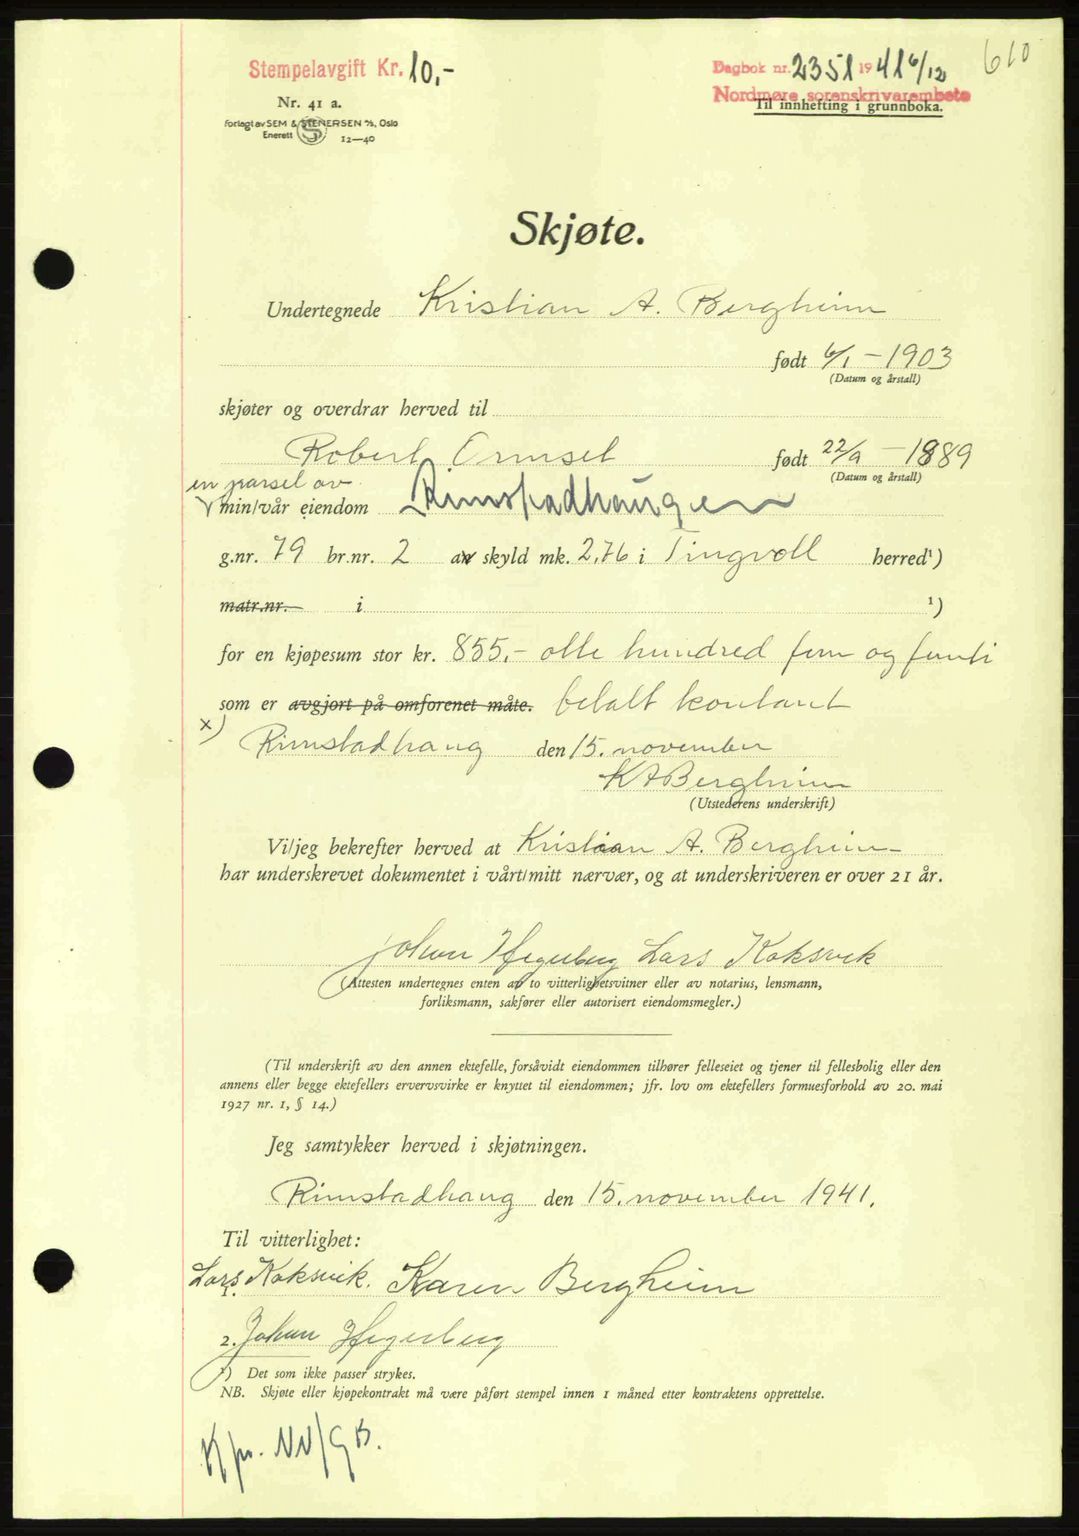 610
Stempelavgift Kr. 10,-
Dagbok nr. 2351 1941 6/12
Nordmøre sorenskrivarembete
Til innhefting i grunnboka.
Nr. 41 a.
Forlagt av SEM & STENERSEN A/S, Oslo
Enerett S 12—40
Skjøte.
Undertegnede Kristian A. Bergheim
født 6/1 - 1903
(Datum og årstall)
skjøter og overdrar herved til
Robert Ormset født 22/9 - 1889
(Datum og årstall)
en parsel av
min/vår eiendom Rimstadhaugen
g.nr. 79 br.nr. 2 av skyld mk. 2,76 i Tingvoll herred¹)
matr.nr. i ¹)
for en kjøpesum stor kr. 855,- otte hundred fem og femti
som er avgjort på omforenet måte. betalt kontant
x)
Rimstadhaug den 15. november
K A Bergheim
(Utstederens underskrift)
Vi/jeg bekrefter herved at Kristian A. Bergheim
har underskrevet dokumentet i vårt/mitt nærvær, og at underskriveren er over 21 år.
Johan Hegerberg Lars Koksvik
(Attesten undertegnes enten av to vitterlighetsvitner eller av notarius, lensmann,
forliksmann, sakfører eller autorisert eiendomsmegler.)
(Til underskrift av den annen ektefelle, forsåvidt eiendommen tilhører felleseiet og tjener til fellesbolig eller den
annens eller begge ektefellers ervervsvirke er knyttet til eiendommen; jfr. lov om ektefellers formuesforhold av 20. mai
1927 nr. 1, § 14.)
Jeg samtykker herved i skjøtningen.
Rimstadhaug den 15. november 1941.
Til vitterlighet:
1. Lars Koksvik. Karen Bergheim
2. Johan Hegerberg
¹) Det som ikke passer strykes.
NB. Skjøte eller kjøpekontrakt må være påført stempel innen 1 måned etter kontraktens opprettelse.
NN/GB.